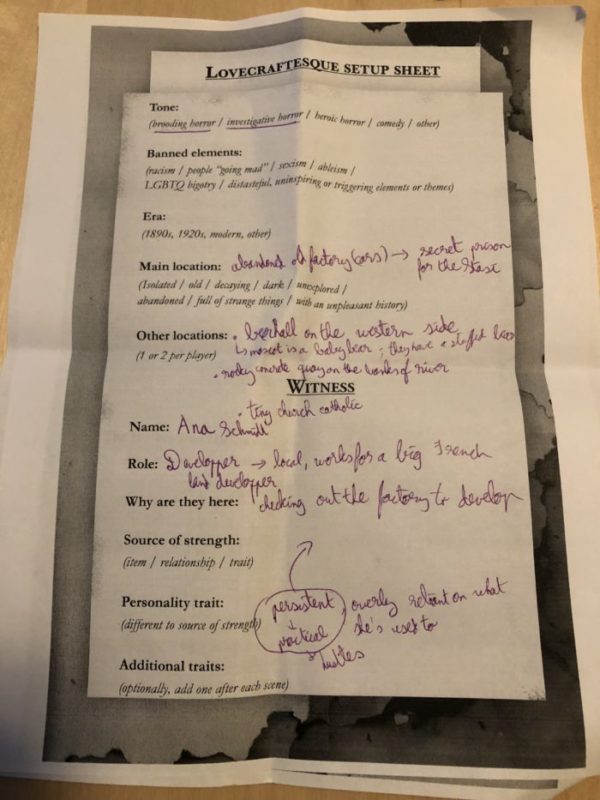 LOVECRAFTESQUE SETUP SHEET
Tone:
(brooding horror / investigative horror / heroic horror / comedy / other)
Banned elements:
(racism / people "going mad" / sexism / ableism /
LGBTQ bigotry / distasteful, uninspiring or triggering elements or themes)
Era:
(1890s, 1920s, modern, other)
Main location: abandoned old factory (cars) → secret prison
for the Stasi
(Isolated / old / decaying / dark / unexplored /
abandoned / full of strange things / with an unpleasant history)
Other locations: • beerhall on the western side
(1 or 2 per player) ↳ mascot is a baby bear, they have a stuffed
• rocky concrete quay on the banks of river
WITNESS
• tiny church catholic
Name: Ana Schmidt
Role: Developper → local, works for a big French
land developper
Why are they here: checking out the factory to develop
Source of strength:
(item / relationship / trait)
Personality trait: persistent, overly reliant on what
(different to source of strength) practical she's used to
hustles
Additional traits:
(optionally, add one after each scene)